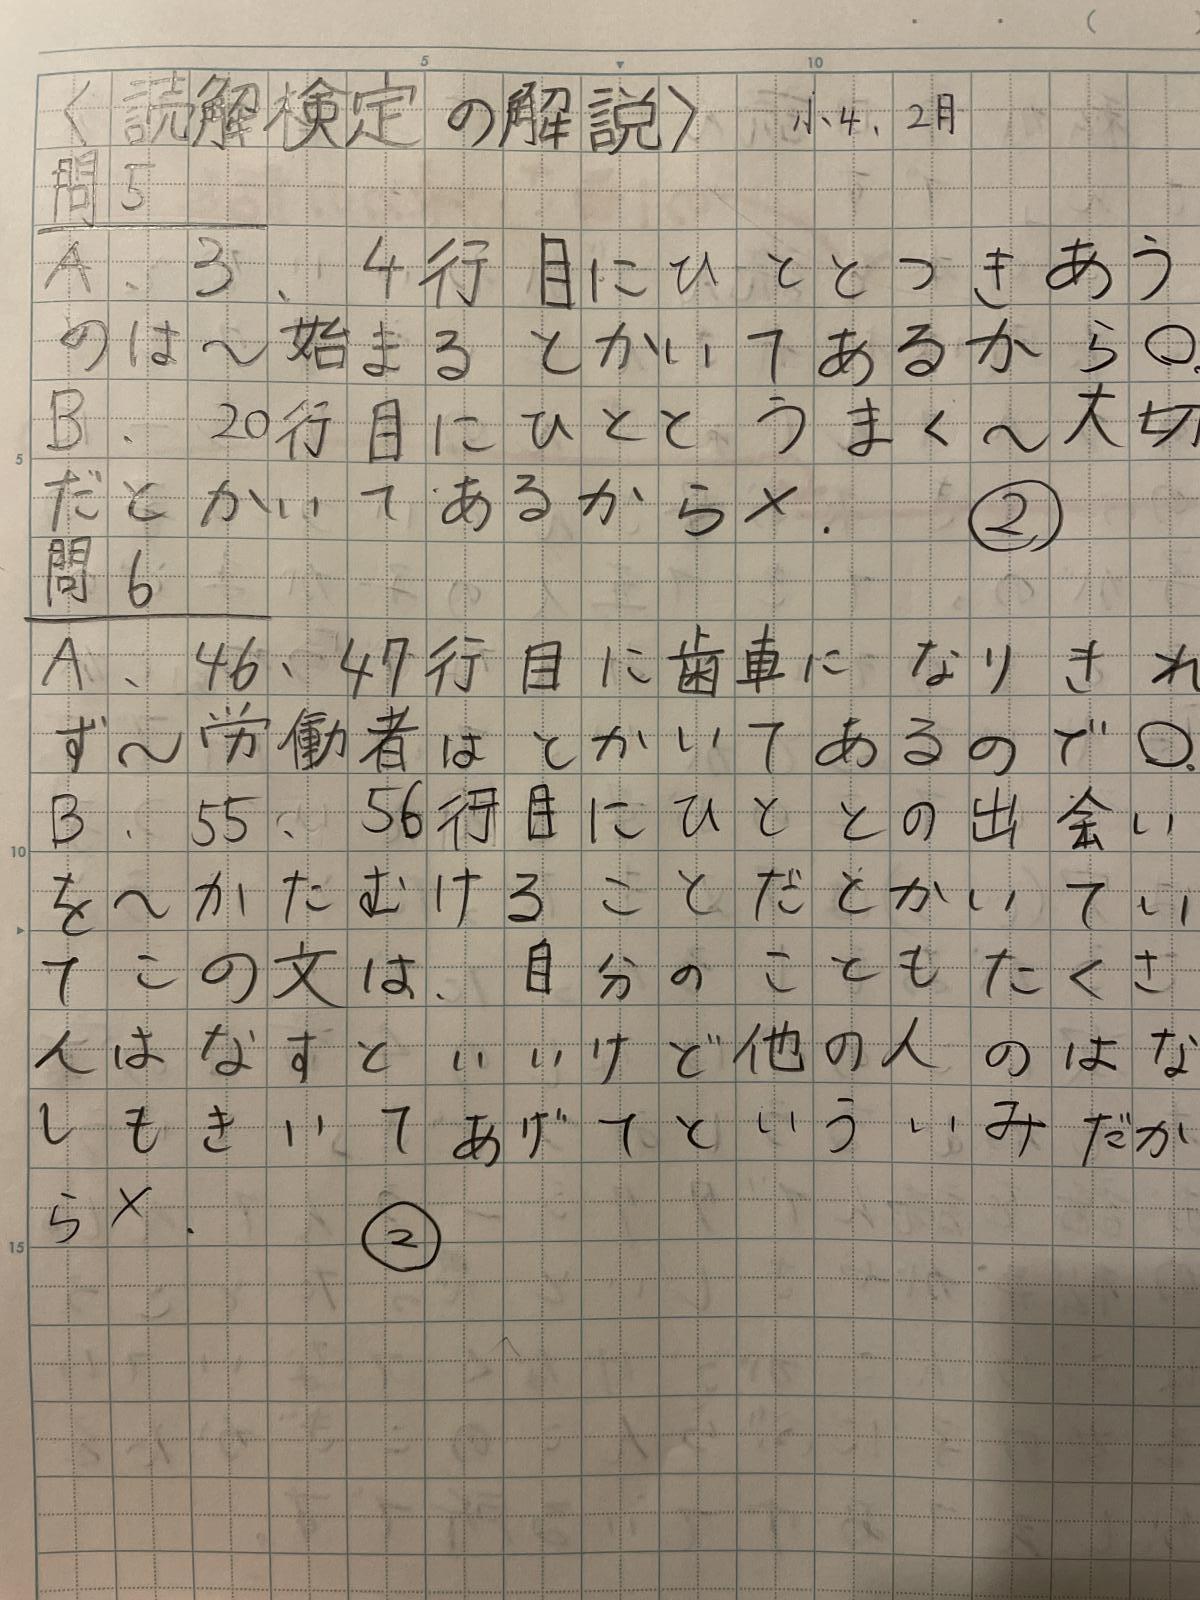 〈読解検定の解説〉 小4、2月
問5
A、3、4行目にひととつきあう
のは〜始まるとかいてあるから○.
B. 20行目にひととうまく〜大切
だとかいてあるから×. ②
問6
A、46、47行目に歯車になりきれ
ず〜労働者はとかいてあるので○.
B.55、56行目にひととの出会い
を〜かたむけることだとかいてい
てこの文は、自分のこともたくさ
んはなすといいけど他の人のはな
しもきいてあげてといういみだか
ら×. ②